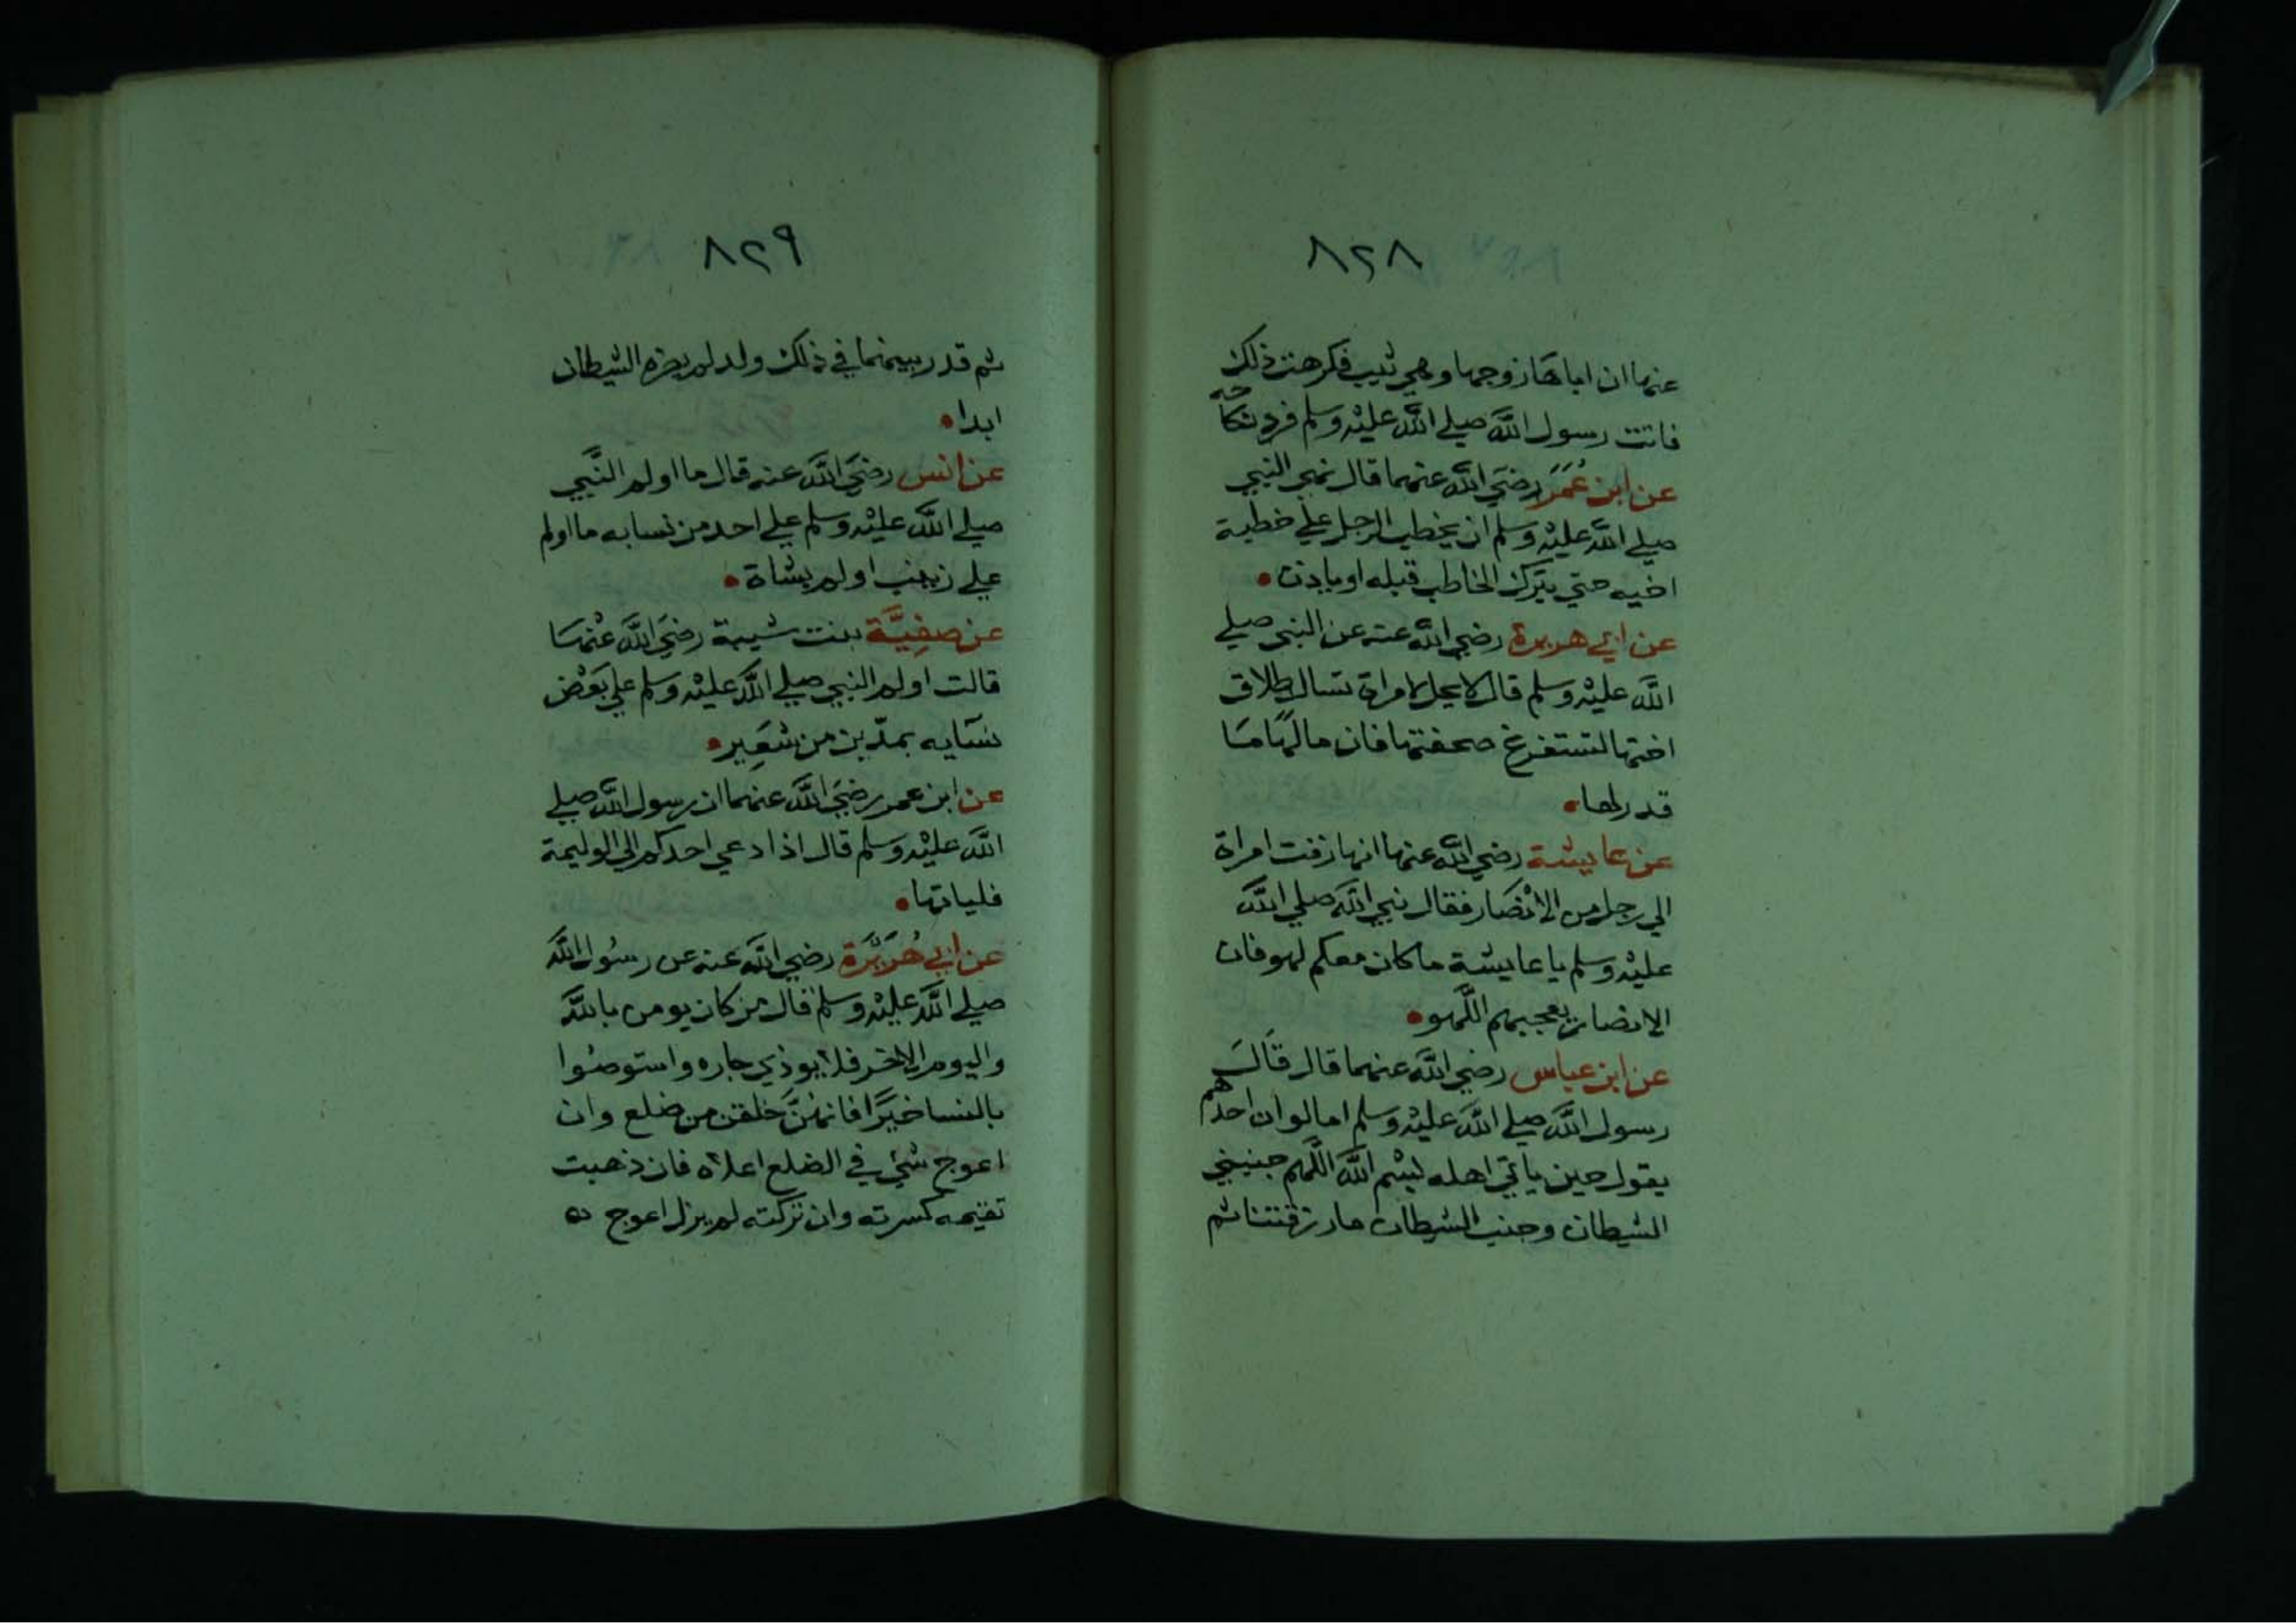 ٨٢٨
عنها ان اباها زوجها وهي ثيب فكرهت ذلك
فاتت رسول الله صلي الله عليه وسلم فرد نكاحه
عن ابن عُمَرَ رضيَ الله عنهما قال نهي النبي
صلي الله عليه وسلم ان يخطب الرجل علي خطبة
اخيه حتي يترك الخاطب قبله او ياذن •
عن ابي هريرة رضي الله عنه عن النبي صلي
الله عليه وسلم قال لا يحل لامراة تسال طلاق
اختها لتستفرغ صحفتها فان مالها مَا
قدر لها •
عن عايشة رضي الله عنها انها زفت امراة
الي رجل من الانْصَار فقال نبي الله صلي الله
عليه وسلم يا عايشة ما كان معكم لهو فان
الانصار يعجبهم اللهو •
عن ابن عباس رضي الله عنهما قال قَالَ
رسول الله صلي الله عليه وسلم اما لو ان احدهم
يقول حين ياتي اهله بسْم الله اللهم جنبني
الشيطان وجنب الشيطان ما رزقتنا ثم
٨٢٩
ثم قدر بينهما في ذلك ولد لم يضره الشيطان
ابدا •
عن انس رضيَ الله عنه قال ما اولم النَّبي
صلي الله عليه وسلم علي احد من نسايه ما اولم
علي زينب اولم بشاة •
عن صفِيَّة بنت شيبة رضيَ الله عنْهَا
قالت اولم النبي صلي الله عليه وسلم علي بَعْض
نسَايه بمدّين من شعَير •
عن ابن عمر رضيَ الله عنهما ان رسول الله صلي
الله عليه وسلم قال اذا دعي احدكم الي الوليمة
فلياتها •
عن ابي هُرَيْرَة رضي الله عنه عن رسُول الله
صلي الله عليه وسلم قال من كان يومن بالله
واليوم الاخر فلا يوذي جاره واستوصُوا
بالنسا خيرًا فانهُنَّ خلقن من ضلع وان
اعوج شيْ في الضلع اعلاه فان ذهبت
تقيمه كسرته وان تركته لم يزل اعوج